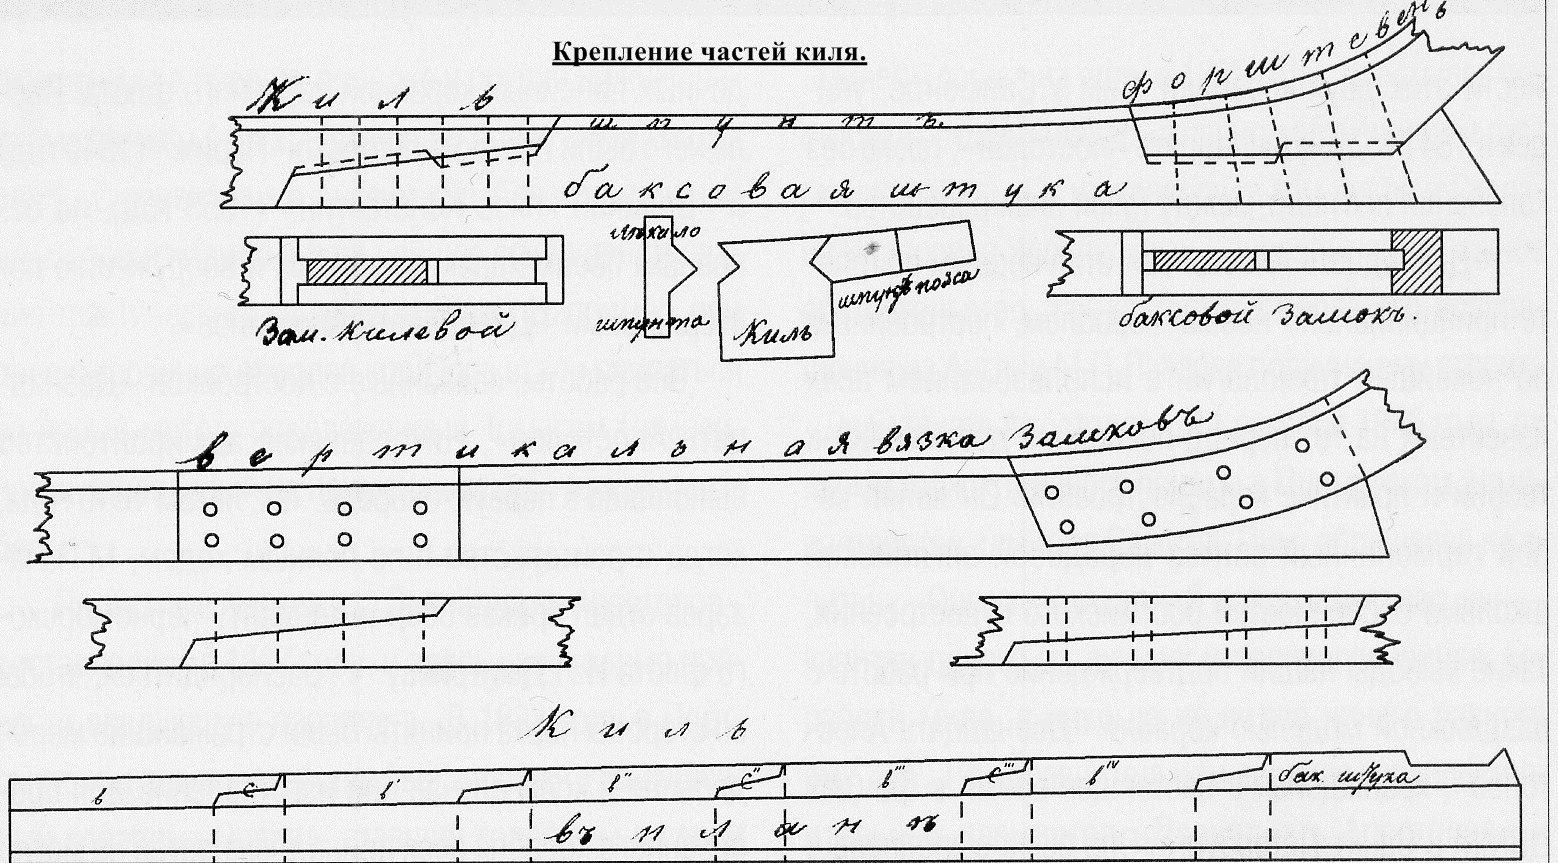 Крепление частей киля.
Форштевень
Киль
шпунтъ.
баксовая штука
лекало
шпунта
Киль
шпунт. пояса
Зам. килевой
баксовой Замокъ.
вертикальная вязка Замковъ
Киль
в с в' в'' с'' в''' с''' в'''' бак. штука
въ планъ